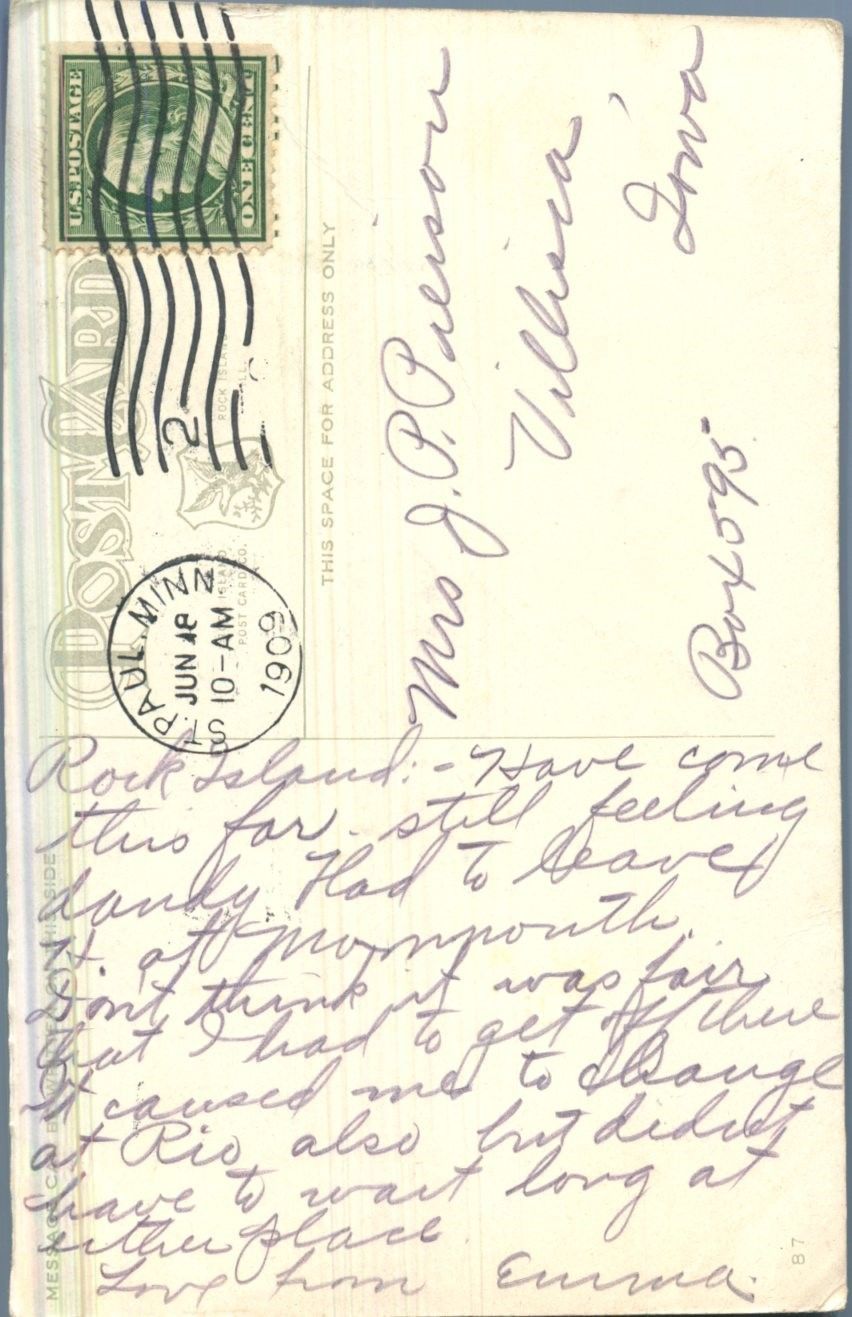 POST CARD
U.S. POSTAGE
ONE CENT
ST. PAUL. MINN
JUN 18
10-AM
1909
2
ROCK ISLAND
POST CARD CO.
ROCK ISLAND
ILL.
THIS SPACE FOR ADDRESS ONLY
Mrs J. P. Pierson
Villisca,
Iowa
Box 595
MESSAGE CAN BE WRITTEN ON THIS SIDE
Rock Island:- Have come
this far. still feeling
dandy Had to leave
at Monmouth.
Dont think it was fair
that I had to get off there
It caused me to change
at Rio, also but didnt
have to wait long at
either place.
Love from Emma.
87